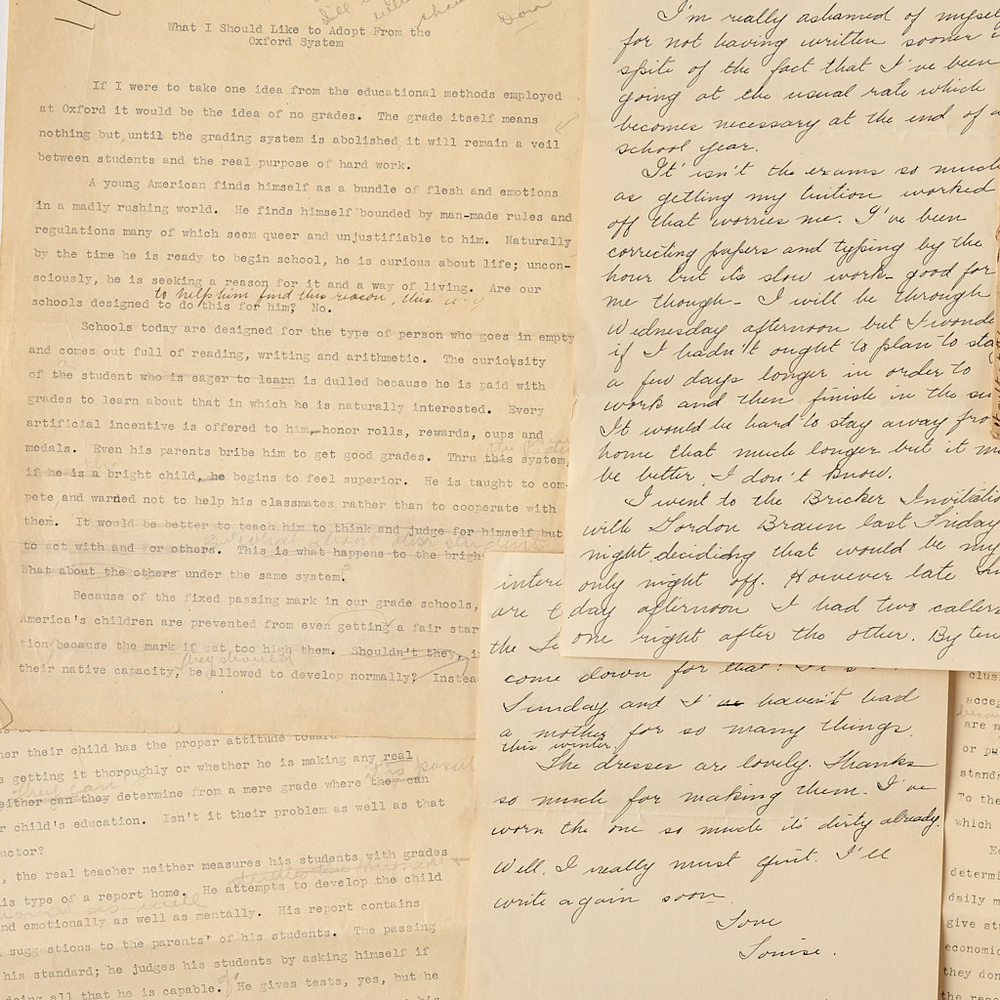 What I Should Like to Adopt From the
Oxford System
If I were to take one idea from the educational methods employed
at Oxford it would be the idea of no grades. The grade itself means
nothing but until the grading system is abolished it will remain a veil
between students and the real purpose of hard work.
A young American finds himself as a bundle of flesh and emotions
in a madly rushing world. He finds himself bounded by man-made rules and
regulations many of which seem queer and unjustifiable to him. Naturally
by the time he is ready to begin school, he is curious about life; uncon-
sciously, he is seeking a reason for it and a way of living. Are our
to help him find this reason, this
schools designed to do this for him? No.
Schools today are designed for the type of person who goes in empty
and comes out full of reading, writing and arithmetic. The curiosity
of the student who is eager to learn is dulled because he is paid with
grades to learn about that in which he is naturally interested. Every
artificial incentive is offered to him, honor rolls, rewards, cups and
medals. Even his parents bribe him to get good grades. Thru this system,
if he is a bright child, he begins to feel superior. He is taught to com-
pete and warned not to help his classmates rather than to cooperate with
them. It would be better to teach him to think and judge for himself but
to act with and for others. This is what happens to the brigh
What about the others under the same system?
Because of the fixed passing mark in our grade schools,
America's children are prevented from even getting a fair star
tion because the mark if set too high them. Shouldn't they, i
they should
their native capacity, be allowed to develop normally? Instea
her their child has the proper attitude toward
s getting it thoroughly or whether he is making any real
they can
either can they determine from a mere grade where they can
r child's education. Isn't it their problem as well as that
uctor?
, the real teacher neither measures his students with grades
is type of a report home. He attempts to develop the child
nd emotionally as well as mentally. His report contains
suggestions to the parents of his students. The passing
his standard; he judges his students by asking himself if
doing all that he is capable. He gives tests, yes, but he
I'm really ashamed of mysel
for not having written sooner
spite of the fact that I've been
going at the usual rate which
becomes necessary at the end of a
school year.
It isn't the exams so much
as getting my tuition worked
off that worries me. I've been
correcting papers and typing by the
hour but its slow work- good for
me though- I will be through
Wednesday afternoon but I wonde
if I hadn't ought to plan to sta
a few days longer in order to
work and then finish in the su
It would be hard to stay away fro
home that much longer but it m
be better. I don't know.
I went to the Bricker Invitatio
with Gordon Braun last Friday
night deciding that would be my
only night off. However late
day afternoon I had two callers
one right after the other. By ten
intere
are t
the Se
come down for that!
Sunday and I haven't had
a mother for so many things
this winter.
The dresses are lovely. Thanks
so much for making them. I've
worn the one so much its dirty already.
Well. I really must quit. I'll
write again soon.
Love
Louise.
clus
accep
are n
or pu
stand
To the
which
determi
daily m
give st
economic
they don
the rea